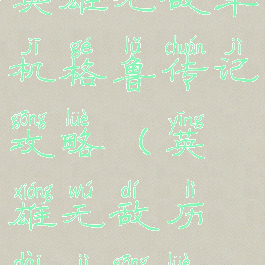 英雄无敌单
jī gé lǔ chuán jì
机格鲁传记
gōng lüè yīng
攻略（英
xióng wú dí lì
雄无敌历